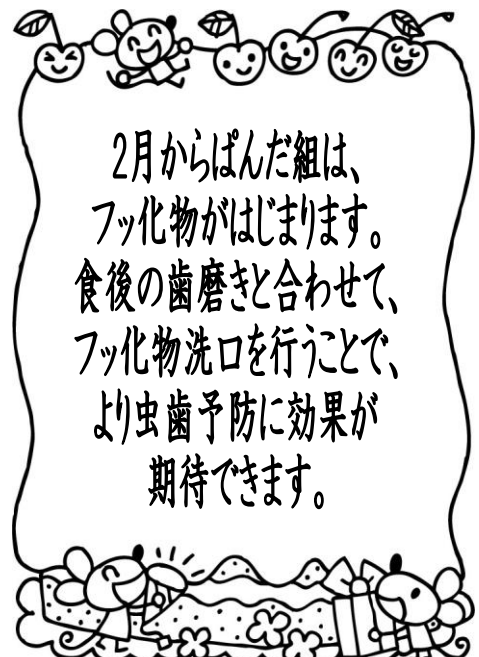 2月からぱんだ組は、
フッ化物がはじまります。
食後の歯磨きと合わせて、
フッ化物洗口を行うことで、
より虫歯予防に効果が
期待できます。